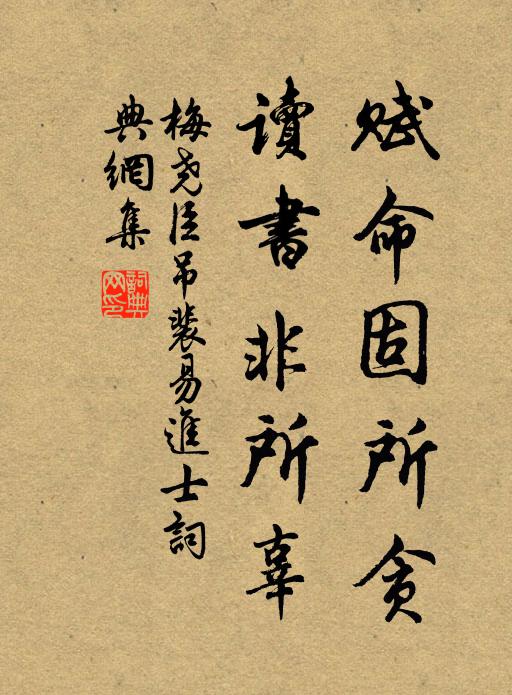 賦命固所貪
讀書非所辜
梅堯臣吊裴易進士詞
典網集
詞典网印